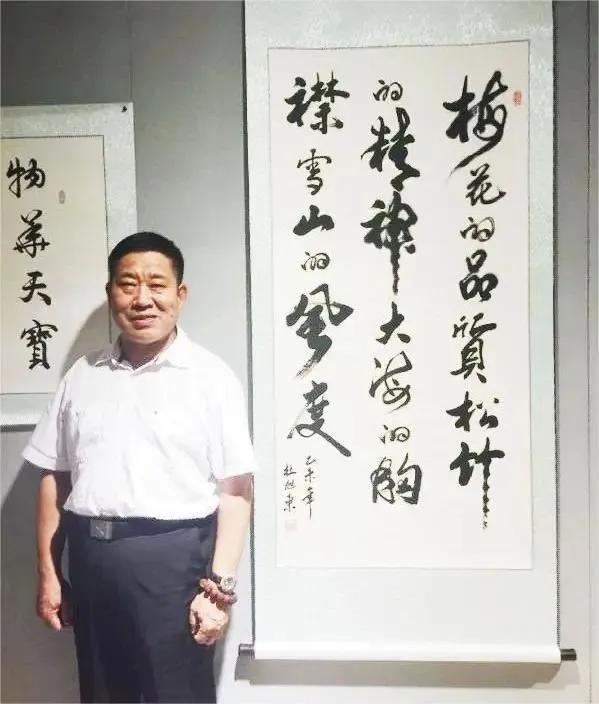 梅花的品質松竹
的精神大海的胸
襟雪山的风度
乙未年
物華天寶